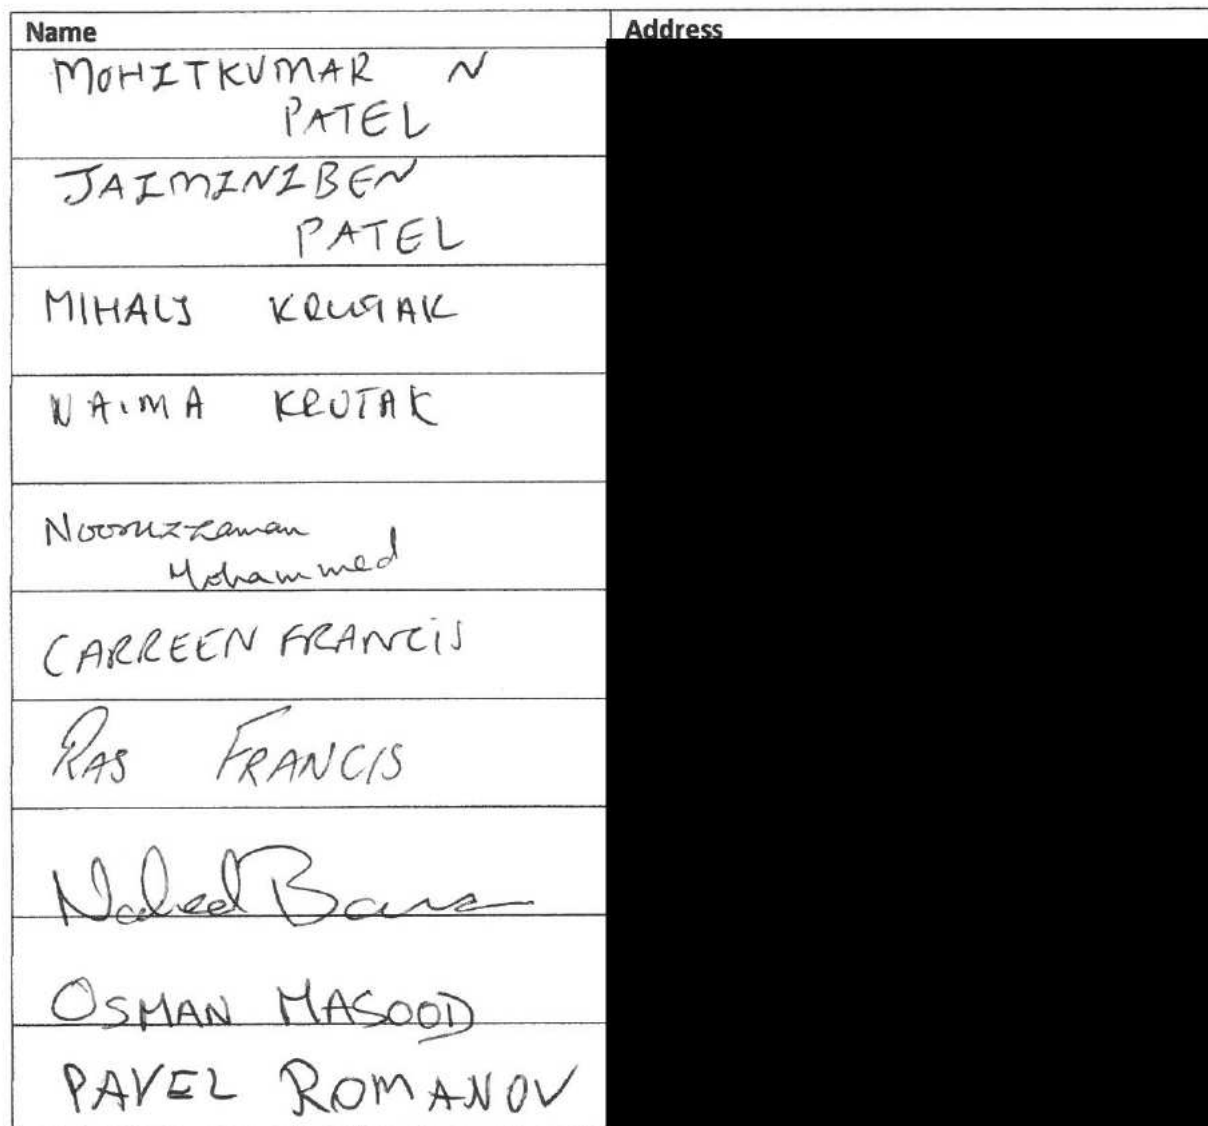 Name Address
MOHITKUMAR N
PATEL
JAIMINIBEN
PATEL
MIHALJ KRUTAK
NAIMA KRUTAK
Nooruzzaman
Mohammed
CARREEN FRANCIS
RAS FRANCIS
Naheed
OSMAN MASOOD
PAVEL ROMANOV